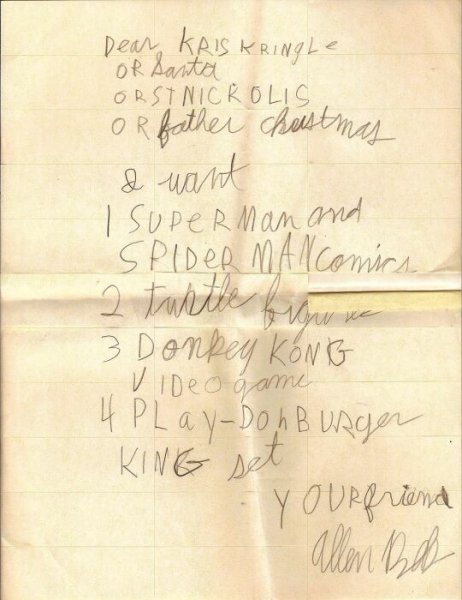 Dear KRIS KRINGLe
OR Santa
ORSTNICKOLIS
OR father christmas
I want
1 SUPeRMan and
SPIDeR MAN comics
2 turtle
3 Donkey KONG
VIDeogame
4 PLay-DohBURger
KING set
YOURfriend
Allen